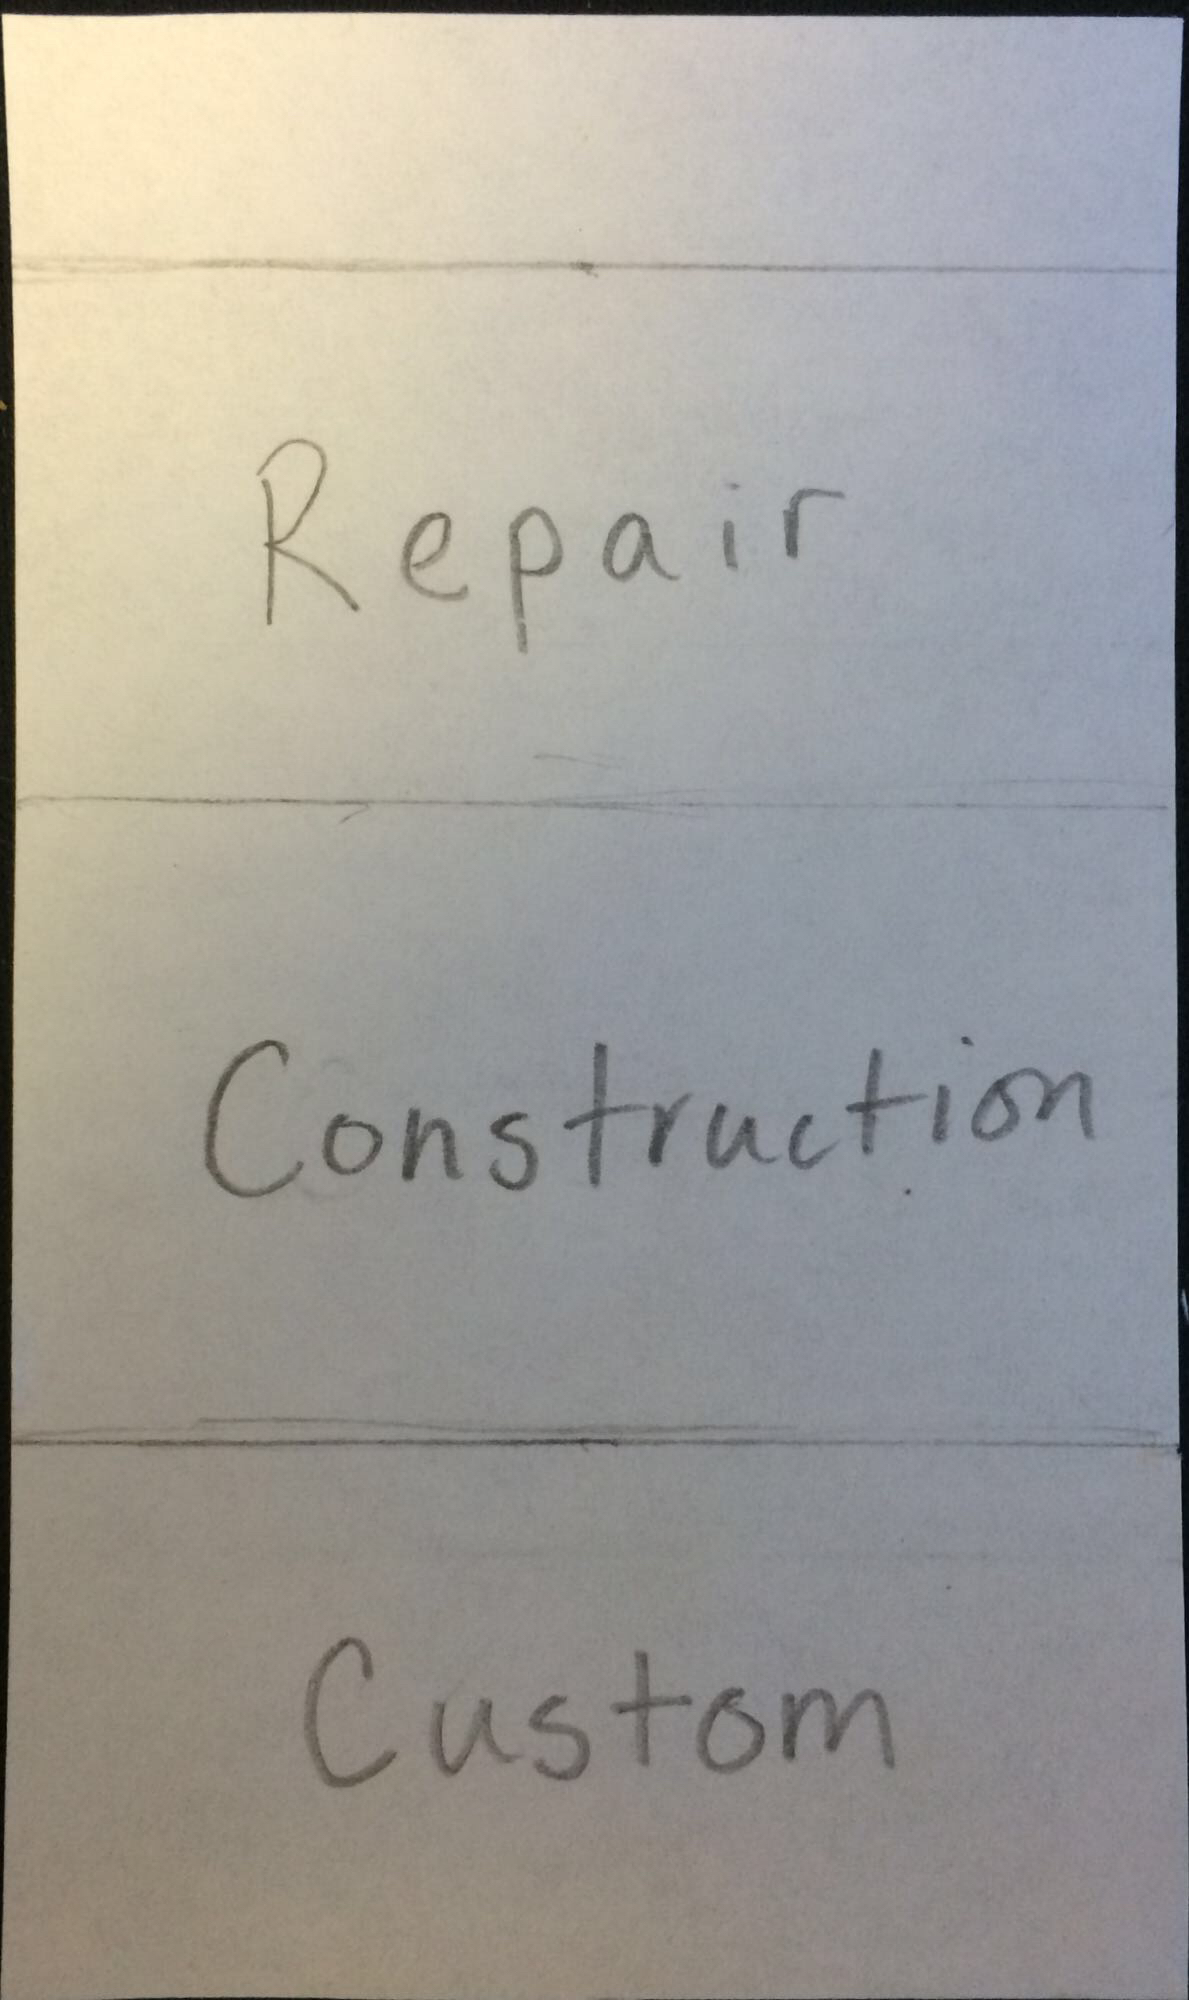 Repair
Construction
Custom